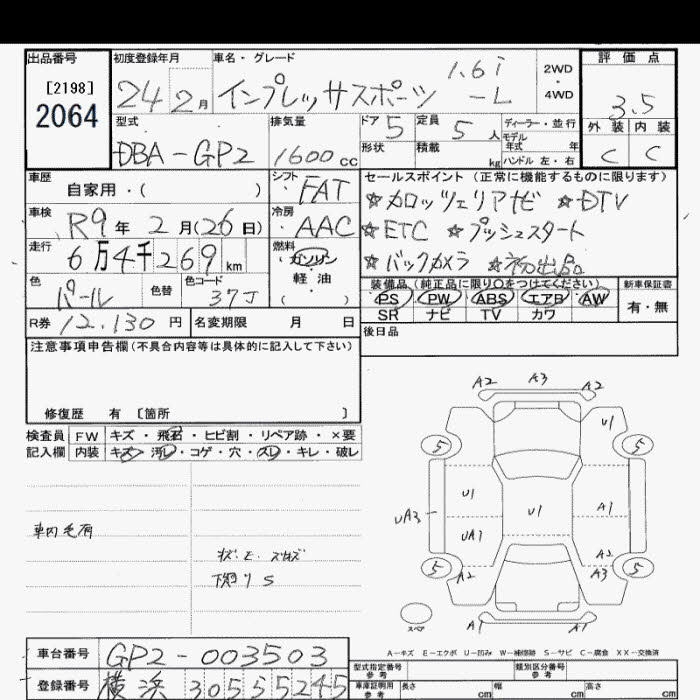 出品番号 初度登録年月 車名・グレード 評価点
[2198]
2064
24 2月 インプレッサスポーツ 1.6i -L
2WD・4WD
3.5
型式 排気量 ドア 定員 ディーラー・並行
DBA-GP2 1600cc 5 5人
モデル年式 年
形状 積載 kg ハンドル 左・右
外装 内装
C C
車歴 自家用・( )
シフト FAT
セールスポイント (正常に機能するものに限ります)
☆カロッツェリアナビ ☆DTV
車検 R9年 2月(26日)
冷房 AAC
☆ETC ☆プッシュスタート
走行 6万4千269km
燃料 ガソリン・軽油・( )
☆バックカメラ ☆初出品
色 パール 色替 色コード 37J
装備品(純正品に限り○をつけてください) 新車保証書
PS PW ABS エアB AW 有・無
SR ナビ TV カワ
R券 12,130円 名変期限 月 日
後日品
注意事項申告欄(不具合内容等は具体的に記入して下さい)
修復歴 有 [箇所 ]
検査員記入欄
FW キズ・飛石・ヒビ割・リペア跡・×要
内装 キズ・汚レ・コゲ・穴・スレ・キレ・破レ
車内毛屑
下廻りS
A2 A3 A2
U1
5 5
U1 A1
UA3 U1
UA1 A2
5 A2 A3 5
スペア A1 A1
A-キズ E-エクボ U-凹み W-補修跡 S-サビ C-腐食 XX-交換済
車台番号 GP2-003503
登録番号 横浜 305 5245
型式指定番号 参考 類別区分番号 参考
車庫証明用 参考 長さ cm 幅 cm 高さ cm